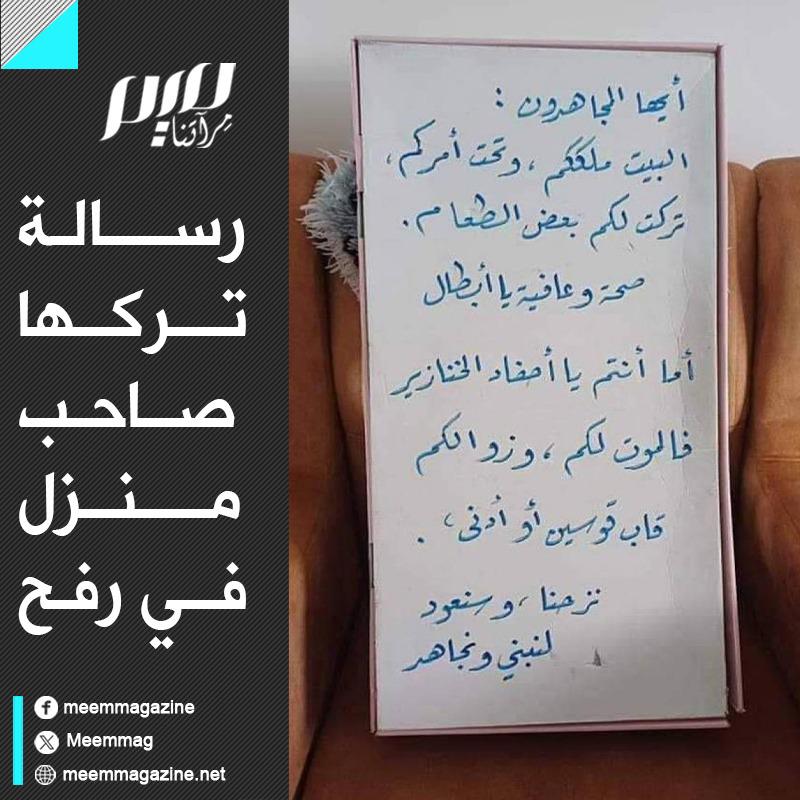 ميم
مِرآتنا
رسالة
تركها
صاحب
منزل
في رفح
meemmagazine
Meemmag
meemmagazine.net
أيها المجاهدون :
البيت ملككم ، وتحت أمركم ،
تركت لكم بعض الطعام .
صحة وعافية يا أبطال
أما أنتم يا أحفاد الخنازير
فالموت لكم ، وزوالكم
قاب قوسين أو أدنى ، .
نزحنا ، وسنعود
لنبني ونجاهد